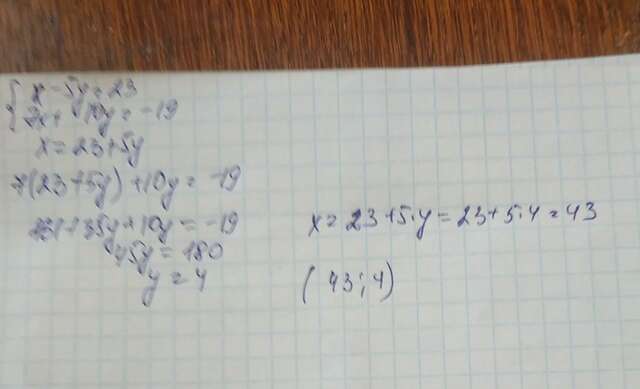 x - 5y = 23
7x + 10y = -19
x = 23 + 5y
7(23 + 5y) + 10y = -19
161 + 35y + 10y = -19
45y = 180
y = 4
x = 23 + 5·y = 23 + 5·4 = 43
(43; 4)